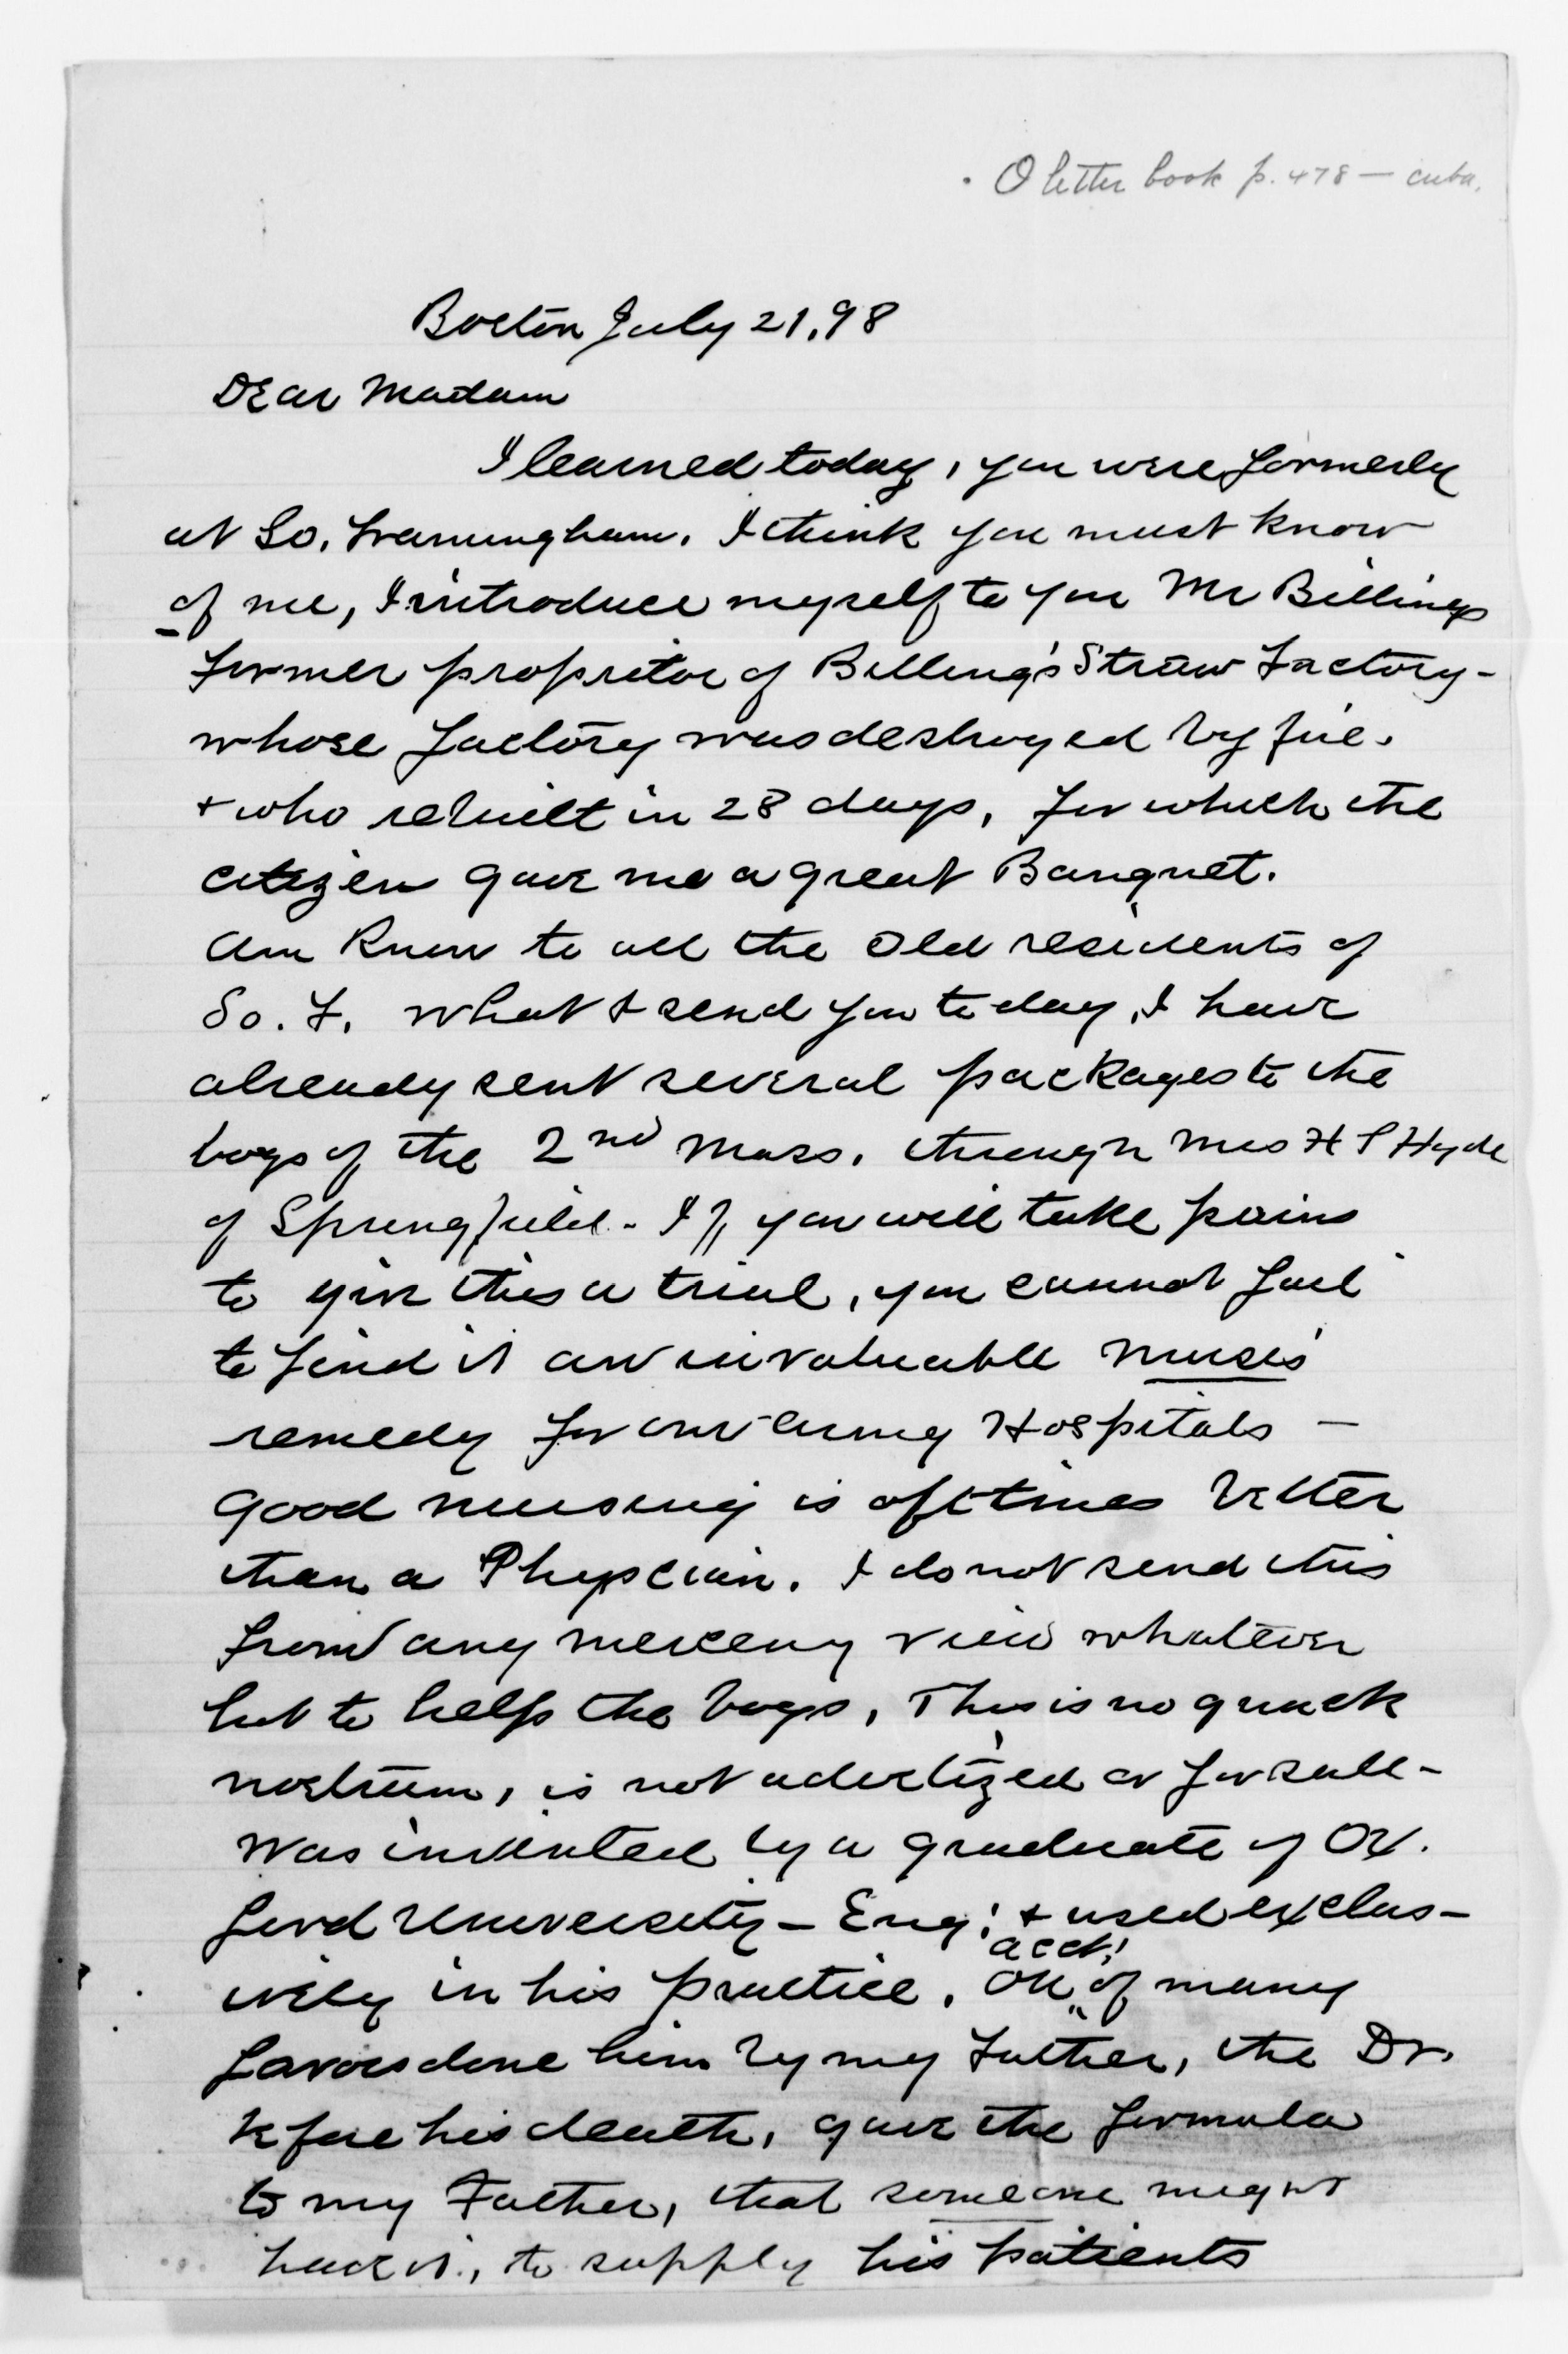 O letter book p. 478 — cuba.
Boston July 21, 98
Dear Madam
I learned today, you were formerly
at So. Framingham. I think you must know
of me, I introduce myself to you Mr Billings
former propritor of Billing's Straw Factory -
whose factory was destroyed by fire.
+ who rebuilt in 28 days, for which the
citizen gave me a great Banquet.
Am know to all the old residents of
So. F. What I send you to day, I have
already sent several packages to the
boys of the 2nd Mass. through Mrs H S Hyde
of Springfield - If you will take pains
to give this a trial, you cannot fail
to find it an invaluable nurses'
remedy for our army Hospitals —
Good nursing is ofttimes better
than a Physcian. I do not send this
from any merceny view whatever
but to help the boys, This is no quack
nostrum, is not advertized or for sale -
was invented by a graduate of Ox.
ford University - Eng; + used exclus-
acct;
ively in his practice. On of many
favors done him by my Father, the Dr.
before his death, gave the formula
to my Father, that someone might
have it, to supply his patients